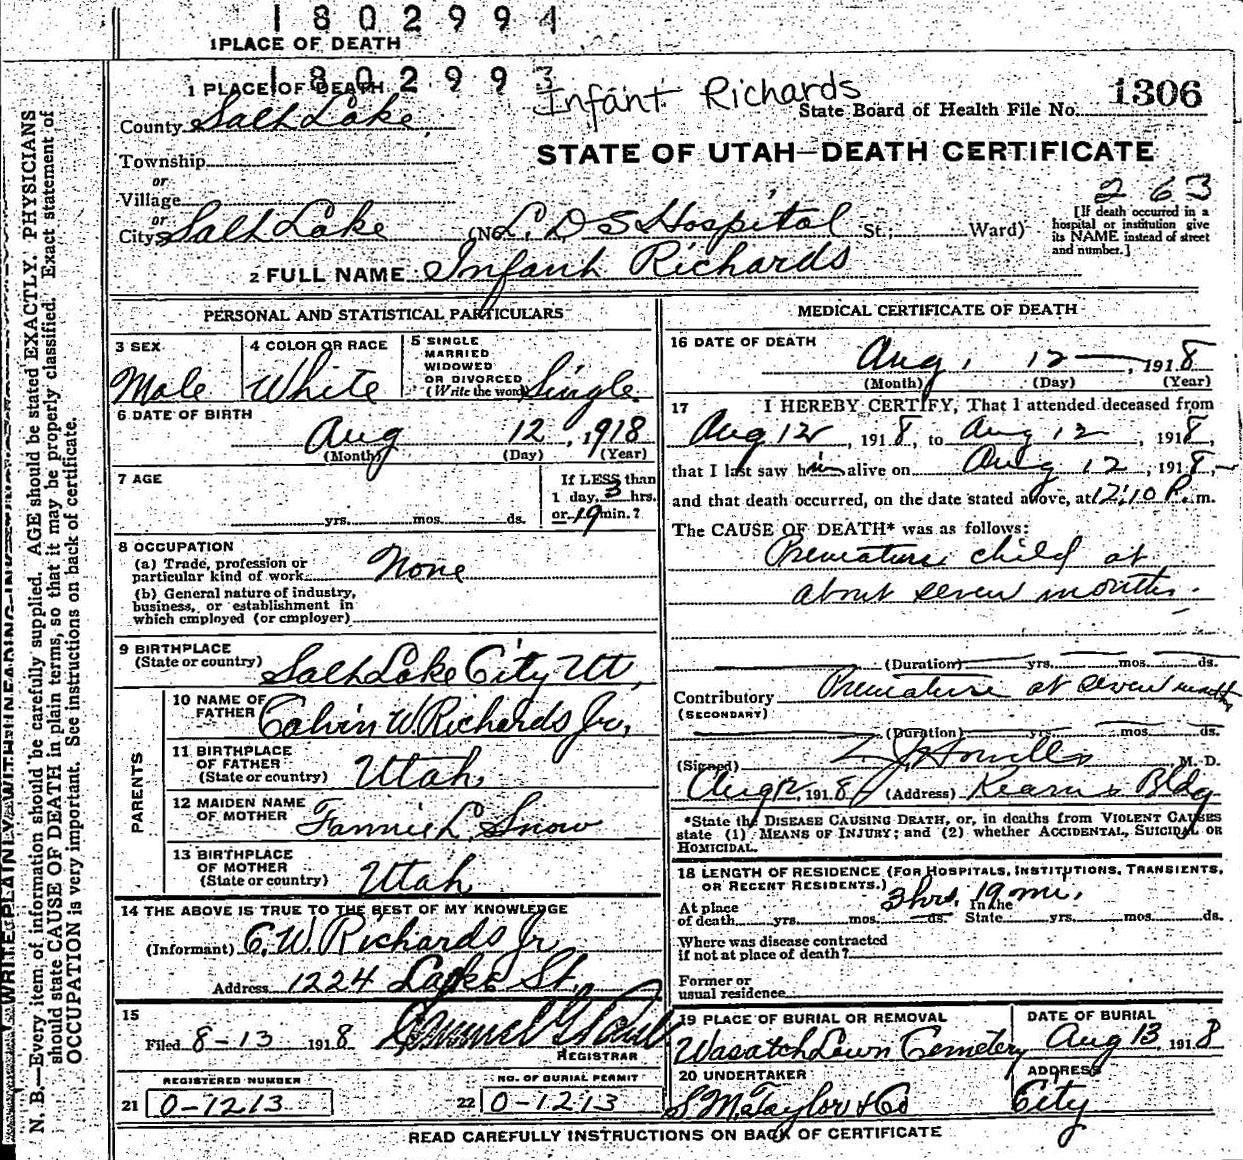 1802994
1 PLACE OF DEATH
1802993
1 PLACE OF DEATH
Infant Richards
State Board of Health File No. 1306
County Salt Lake
STATE OF UTAH—DEATH CERTIFICATE
Township
or
Village
or
City Salt Lake (No. L. D S Hospital St.; Ward)
263
[If death occurred in a
hospital or institution give
its NAME instead of street
and number.]
2 FULL NAME Infant Richards
PERSONAL AND STATISTICAL PARTICULARS
3 SEX
Male
4 COLOR OR RACE
White
5 SINGLE
MARRIED
WIDOWED
OR DIVORCED
(Write the word) Single
6 DATE OF BIRTH
Aug 12, 1918
(Month) (Day) (Year)
7 AGE
yrs. mos. ds.
If LESS than
1 day, 3 hrs.
or 19 min.?
8 OCCUPATION
(a) Trade, profession or
particular kind of work None
(b) General nature of industry,
business, or establishment in
which employed (or employer)
9 BIRTHPLACE
(State or country) Salt Lake City Ut,
PARENTS
10 NAME OF
FATHER Calvin W. Richards Jr,
11 BIRTHPLACE
OF FATHER
(State or country) Utah
12 MAIDEN NAME
OF MOTHER Fannie L. Snow
13 BIRTHPLACE
OF MOTHER
(State or country) Utah
14 THE ABOVE IS TRUE TO THE BEST OF MY KNOWLEDGE
(Informant) C. W. Richards Jr
Address 1224 Lake St,
15
Filed 8-13 1918
REGISTRAR
REGISTERED NUMBER
21 0-1213
NO. OF BURIAL PERMIT
22 0-1213
MEDICAL CERTIFICATE OF DEATH
16 DATE OF DEATH
Aug, 12, 1918
(Month) (Day) (Year)
17 I HEREBY CERTIFY, That I attended deceased from
Aug 12, 1918, to Aug 12, 1918,
that I last saw him alive on Aug 12, 1918,
and that death occurred, on the date stated above, at 12:10 P. m.
The CAUSE OF DEATH* was as follows:
Premature child at
about seven months.
(Duration) yrs. mos. ds.
Contributory Premature at seven
(SECONDARY)
(Duration) yrs. mos. ds.
(Signed) M. D.
Aug 12, 1918 (Address) Kearns Bldg
*State the DISEASE CAUSING DEATH, or, in deaths from VIOLENT CAUSES
state (1) MEANS OF INJURY; and (2) whether ACCIDENTAL, SUICIDAL OR
HOMICIDAL.
18 LENGTH OF RESIDENCE (FOR HOSPITALS, INSTITUTIONS, TRANSIENTS,
OR RECENT RESIDENTS.) 3 hrs. 19 mi.
At place In the
of death yrs. mos. ds. State yrs. mos. ds.
Where was disease contracted
if not at place of death?
Former or
usual residence
19 PLACE OF BURIAL OR REMOVAL
Wasatch Lawn Cemetery
DATE OF BURIAL
Aug 13, 1918
20 UNDERTAKER
S. M. Taylor & Co
ADDRESS
City
READ CAREFULLY INSTRUCTIONS ON BACK OF CERTIFICATE
WRITE PLAINLY WITH
N. B.—Every item of information should be carefully supplied. AGE should be stated EXACTLY. PHYSICIANS
should state CAUSE OF DEATH in plain terms, so that it may be properly classified. Exact statement of
OCCUPATION is very important. See instructions on back of certificate.